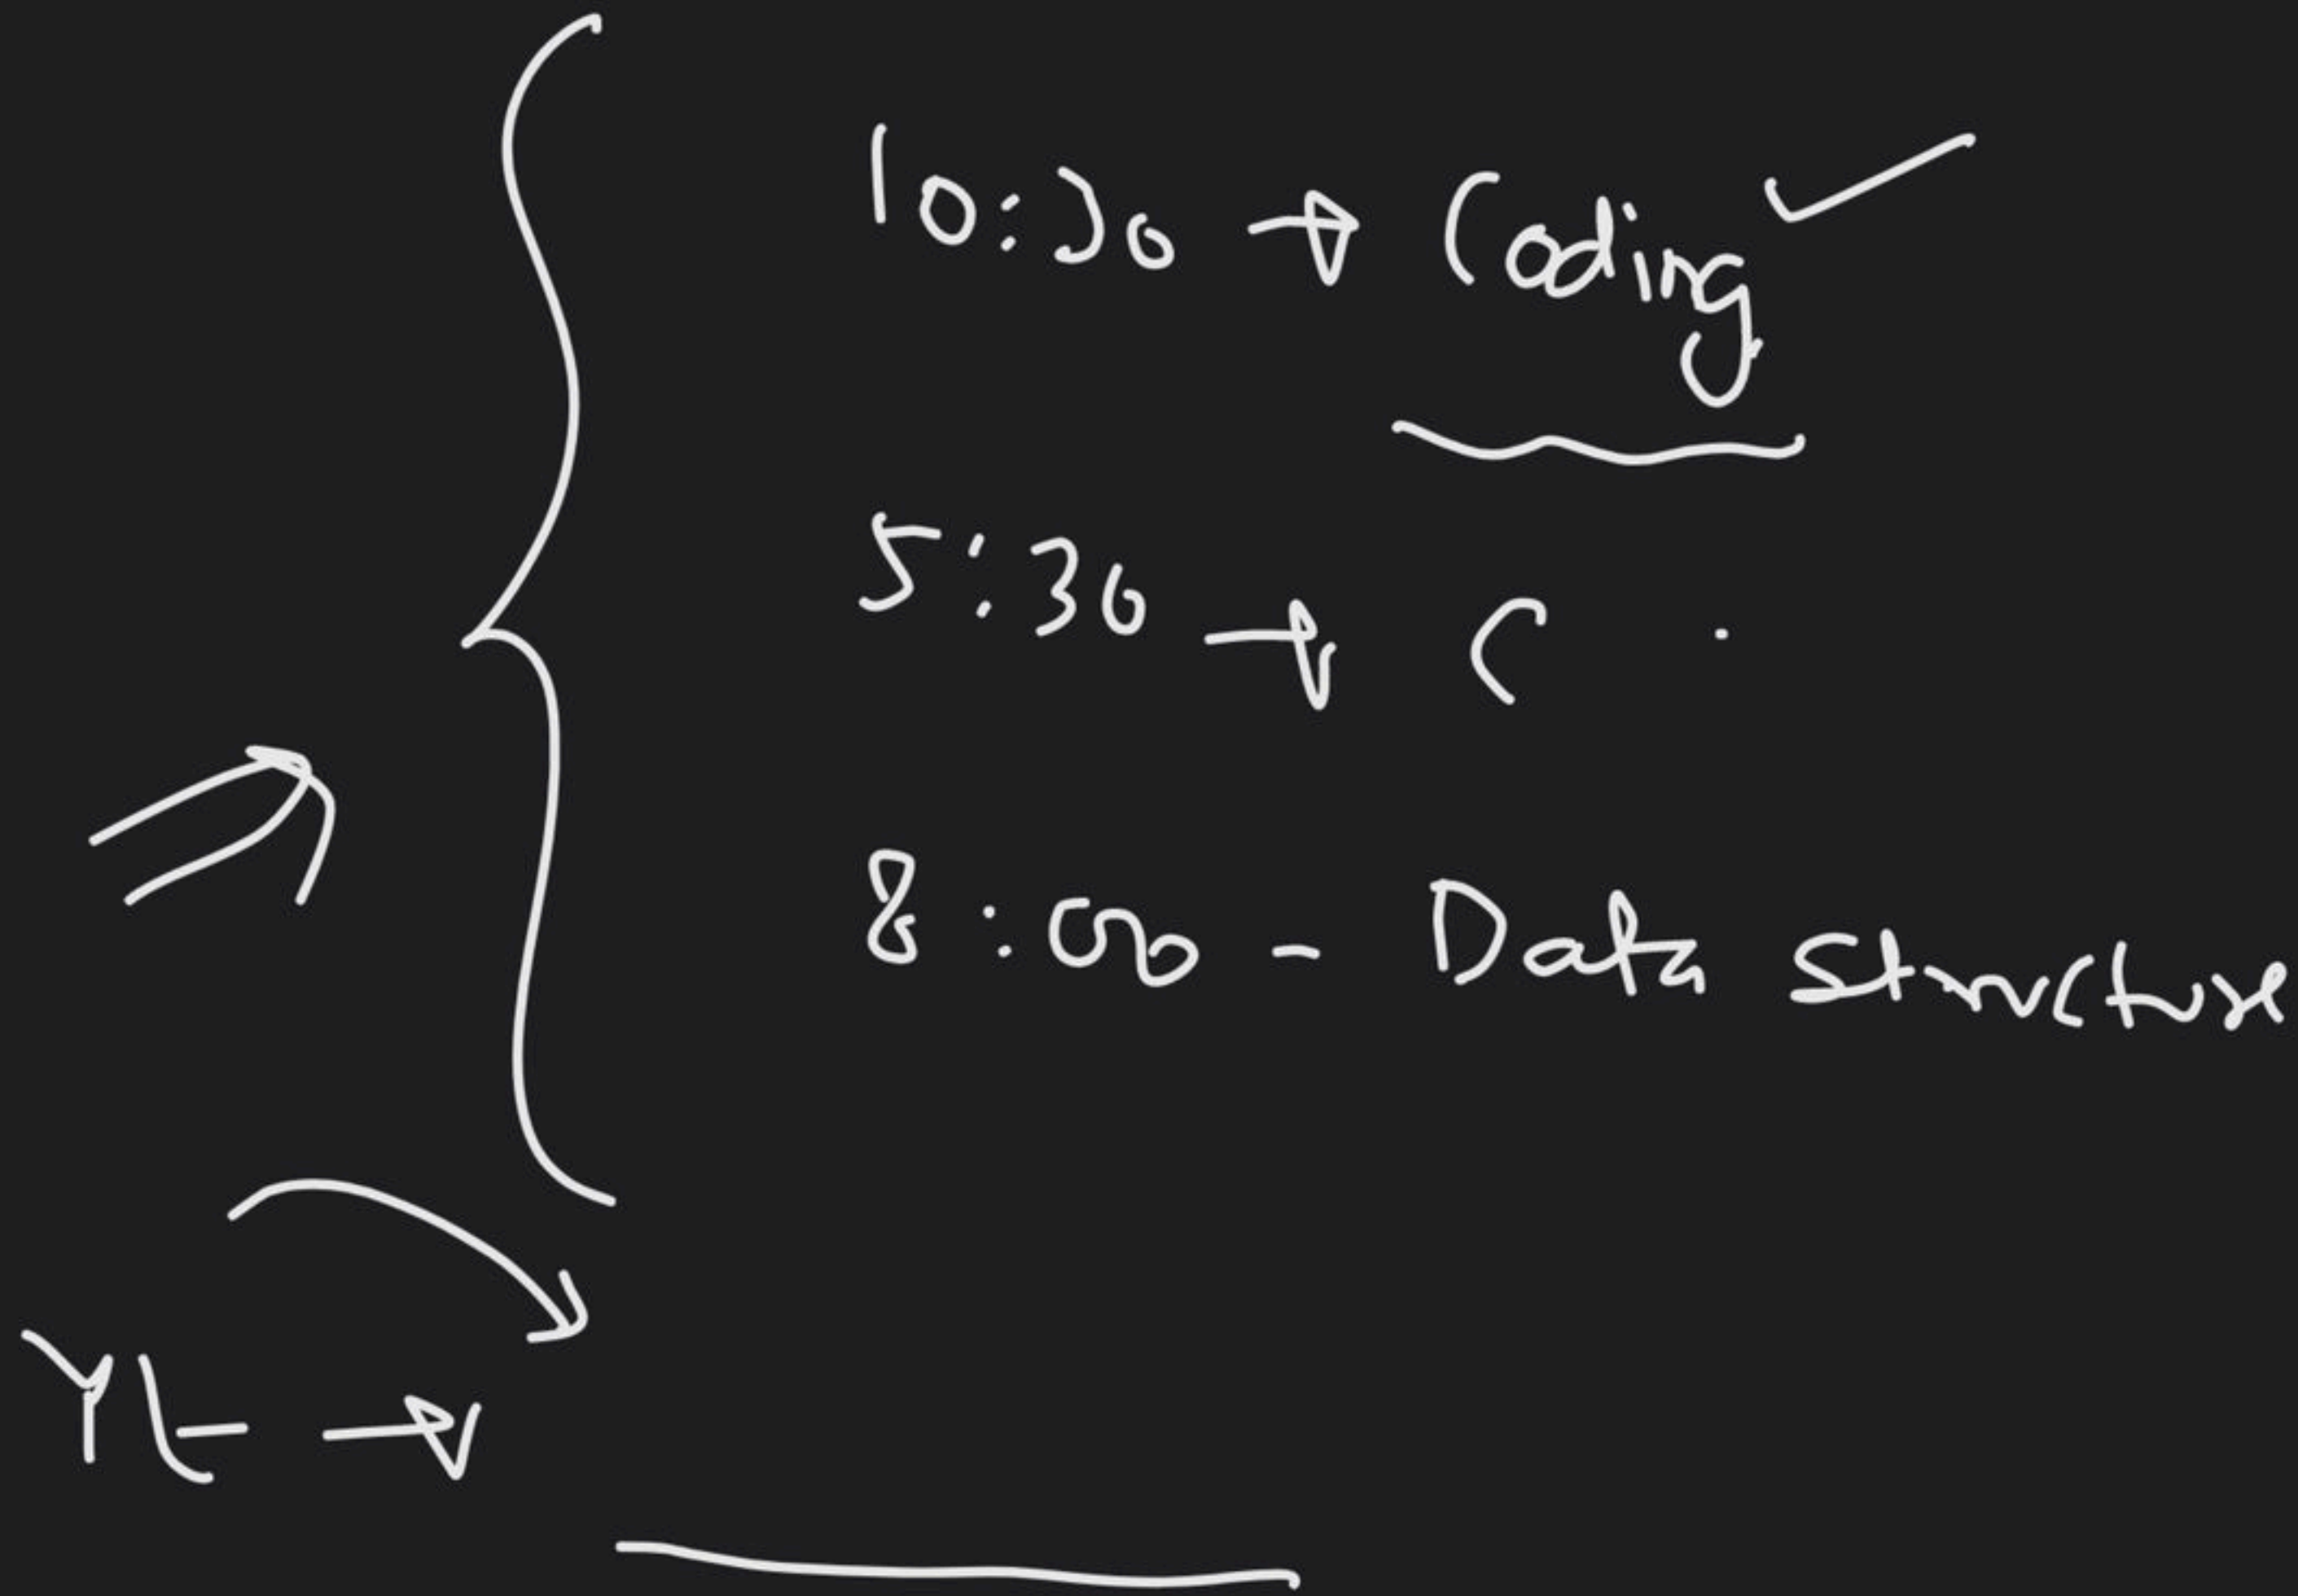 10:30 → Coding ✓
5:30 → C
8:00 - Data structure
Yt →